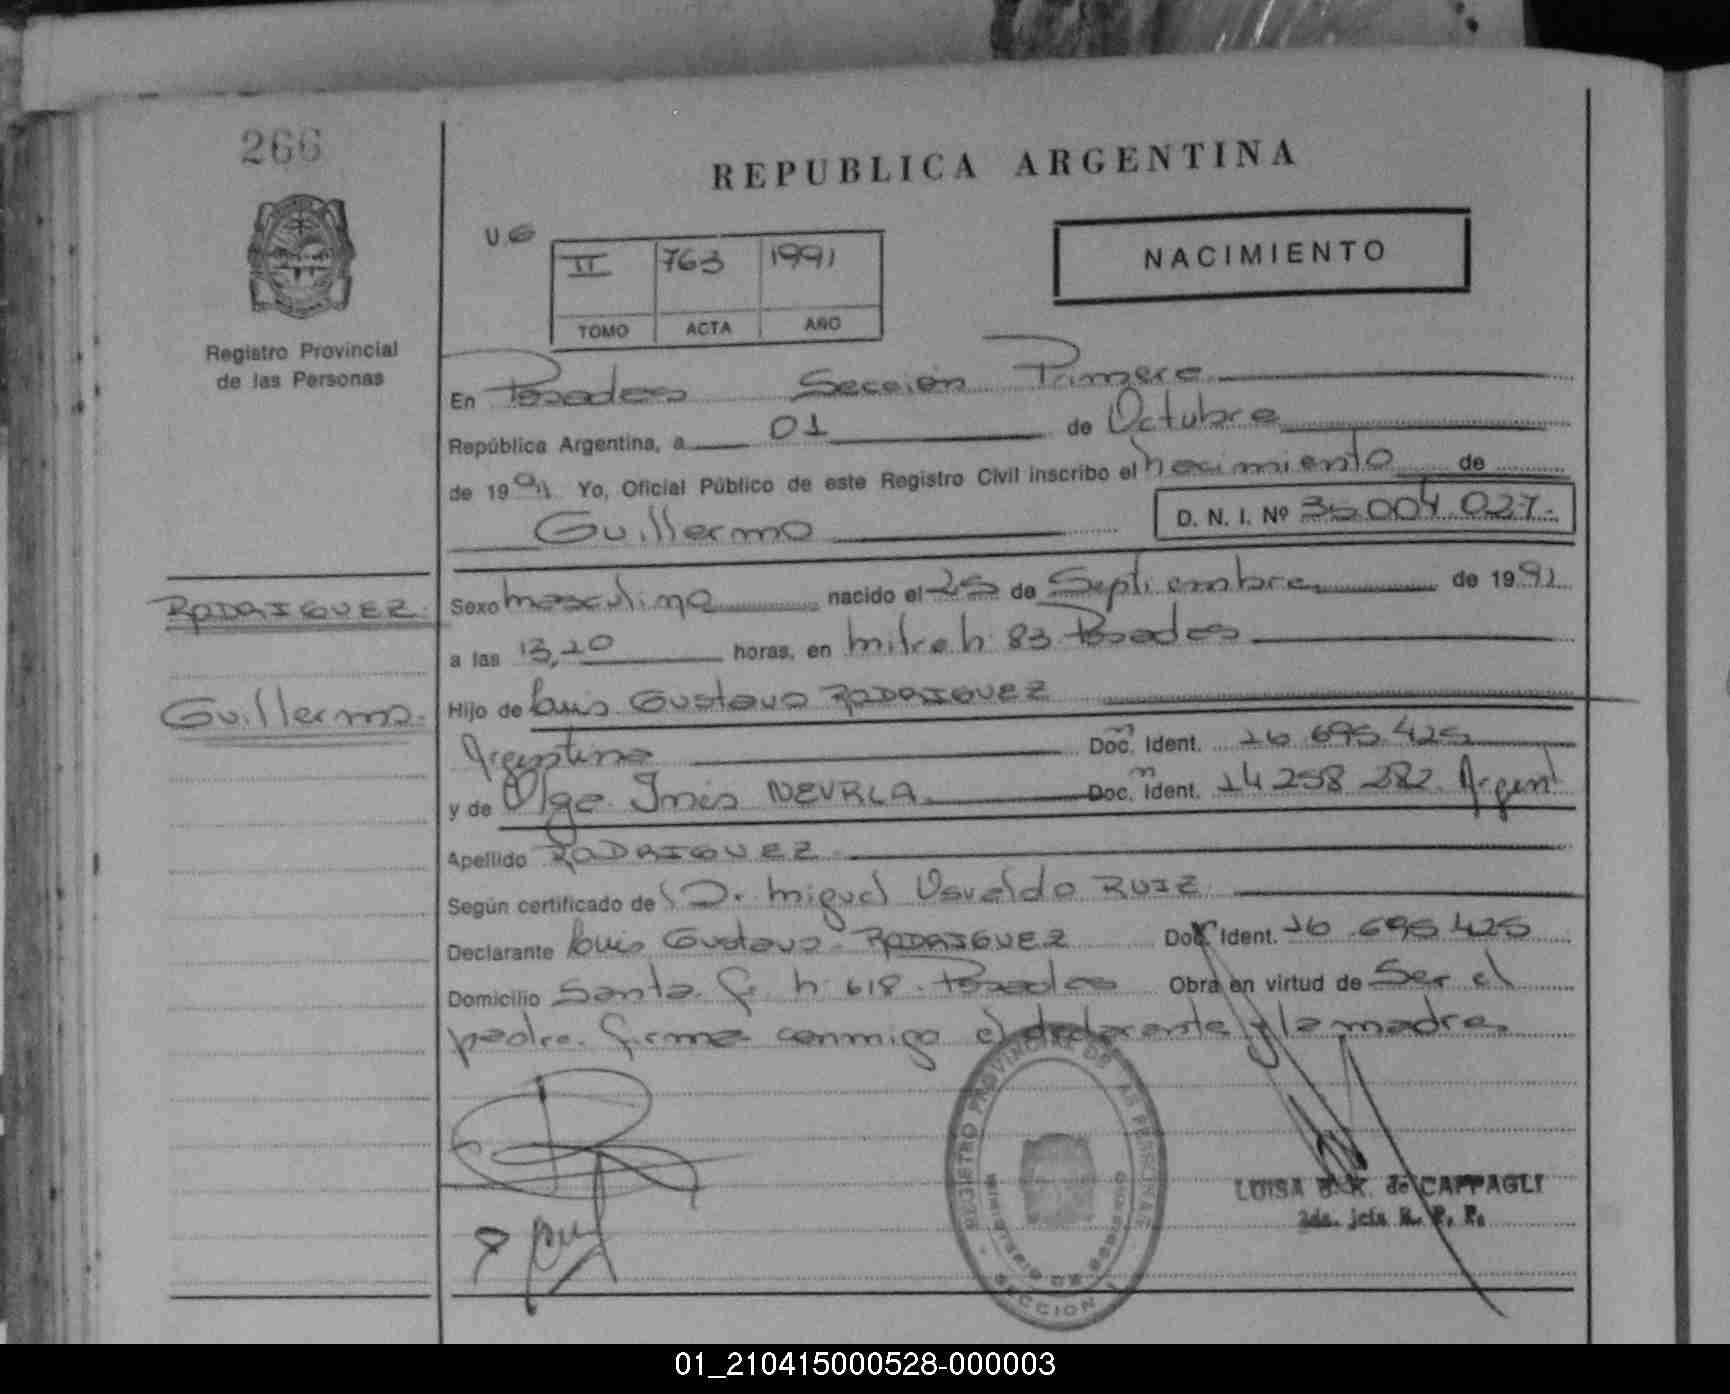 266
REPUBLICA ARGENTINA
Registro Provincial
de las Personas
NACIMIENTO
II 763 1991
TOMO ACTA AÑO
En Posadas Sección Primera
República Argentina, a 01 de Octubre
de 1991 Yo, Oficial Público de este Registro Civil inscribo el nacimiento de
Guillermo D. N. I. Nº 36.004.027.-
RODRIGUEZ.
Guillermo.-
Sexo masculino nacido el 25 de Septiembre de 1991
a las 13,20 horas, en mitre h. 83 Posadas
Hijo de Luis Gustavo RODRIGUEZ
Argentino Doc. Ident. 16 695 425
y de Olga Inés NEVRLA Doc. Ident. 14 258 282. Argent
Apellido RODRIGUEZ.
Según certificado del Dr. Miguel Osvaldo RUIZ
Declarante Luis Gustavo RODRIGUEZ Doc. Ident. 16 695 425
Domicilio Santa fe h 618. Posadas Obra en virtud de Ser el
padre. firma conmigo el declarante y la madre.
REGISTRO PROVINCIAL DE LAS PERSONAS
MINISTERIO DE GOBIERNO
SECCION 1
LUISA de CAPPAGLI
2da. jefa R. P. P.
01_210415000528-000003